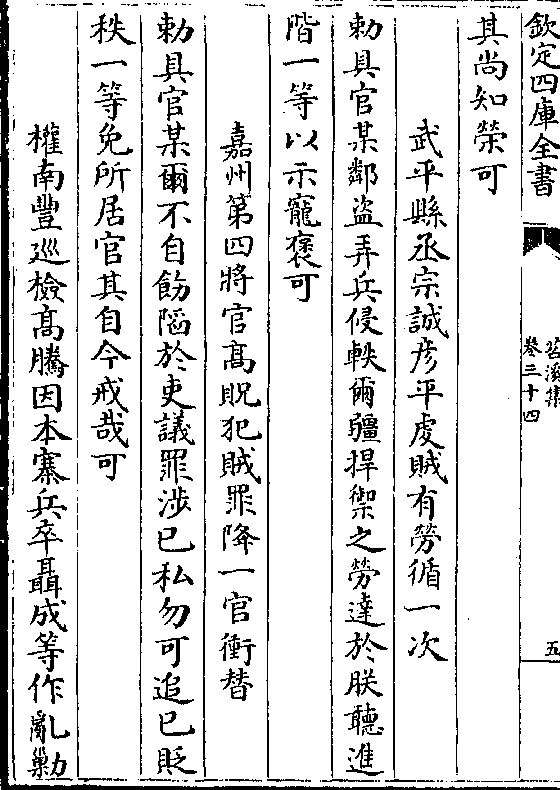 欽定四庫全書
苕溪集
卷三十四
五
其尚知榮可
武平縣丞宗誠彦平虔賊有勞循一次
勅具官某鄰盜弄兵侵軼爾疆捍禦之勞達於朕聽進
階一等以示寵褒可
嘉州第四將官髙貺犯贓罪降一官衝替
勅具官某爾不自飭陷於吏議罪涉已私勿可追已貶
秩一等免所居官其自今戒哉可
權南豐巡檢髙騰因本寨兵卒聶成等作亂勦